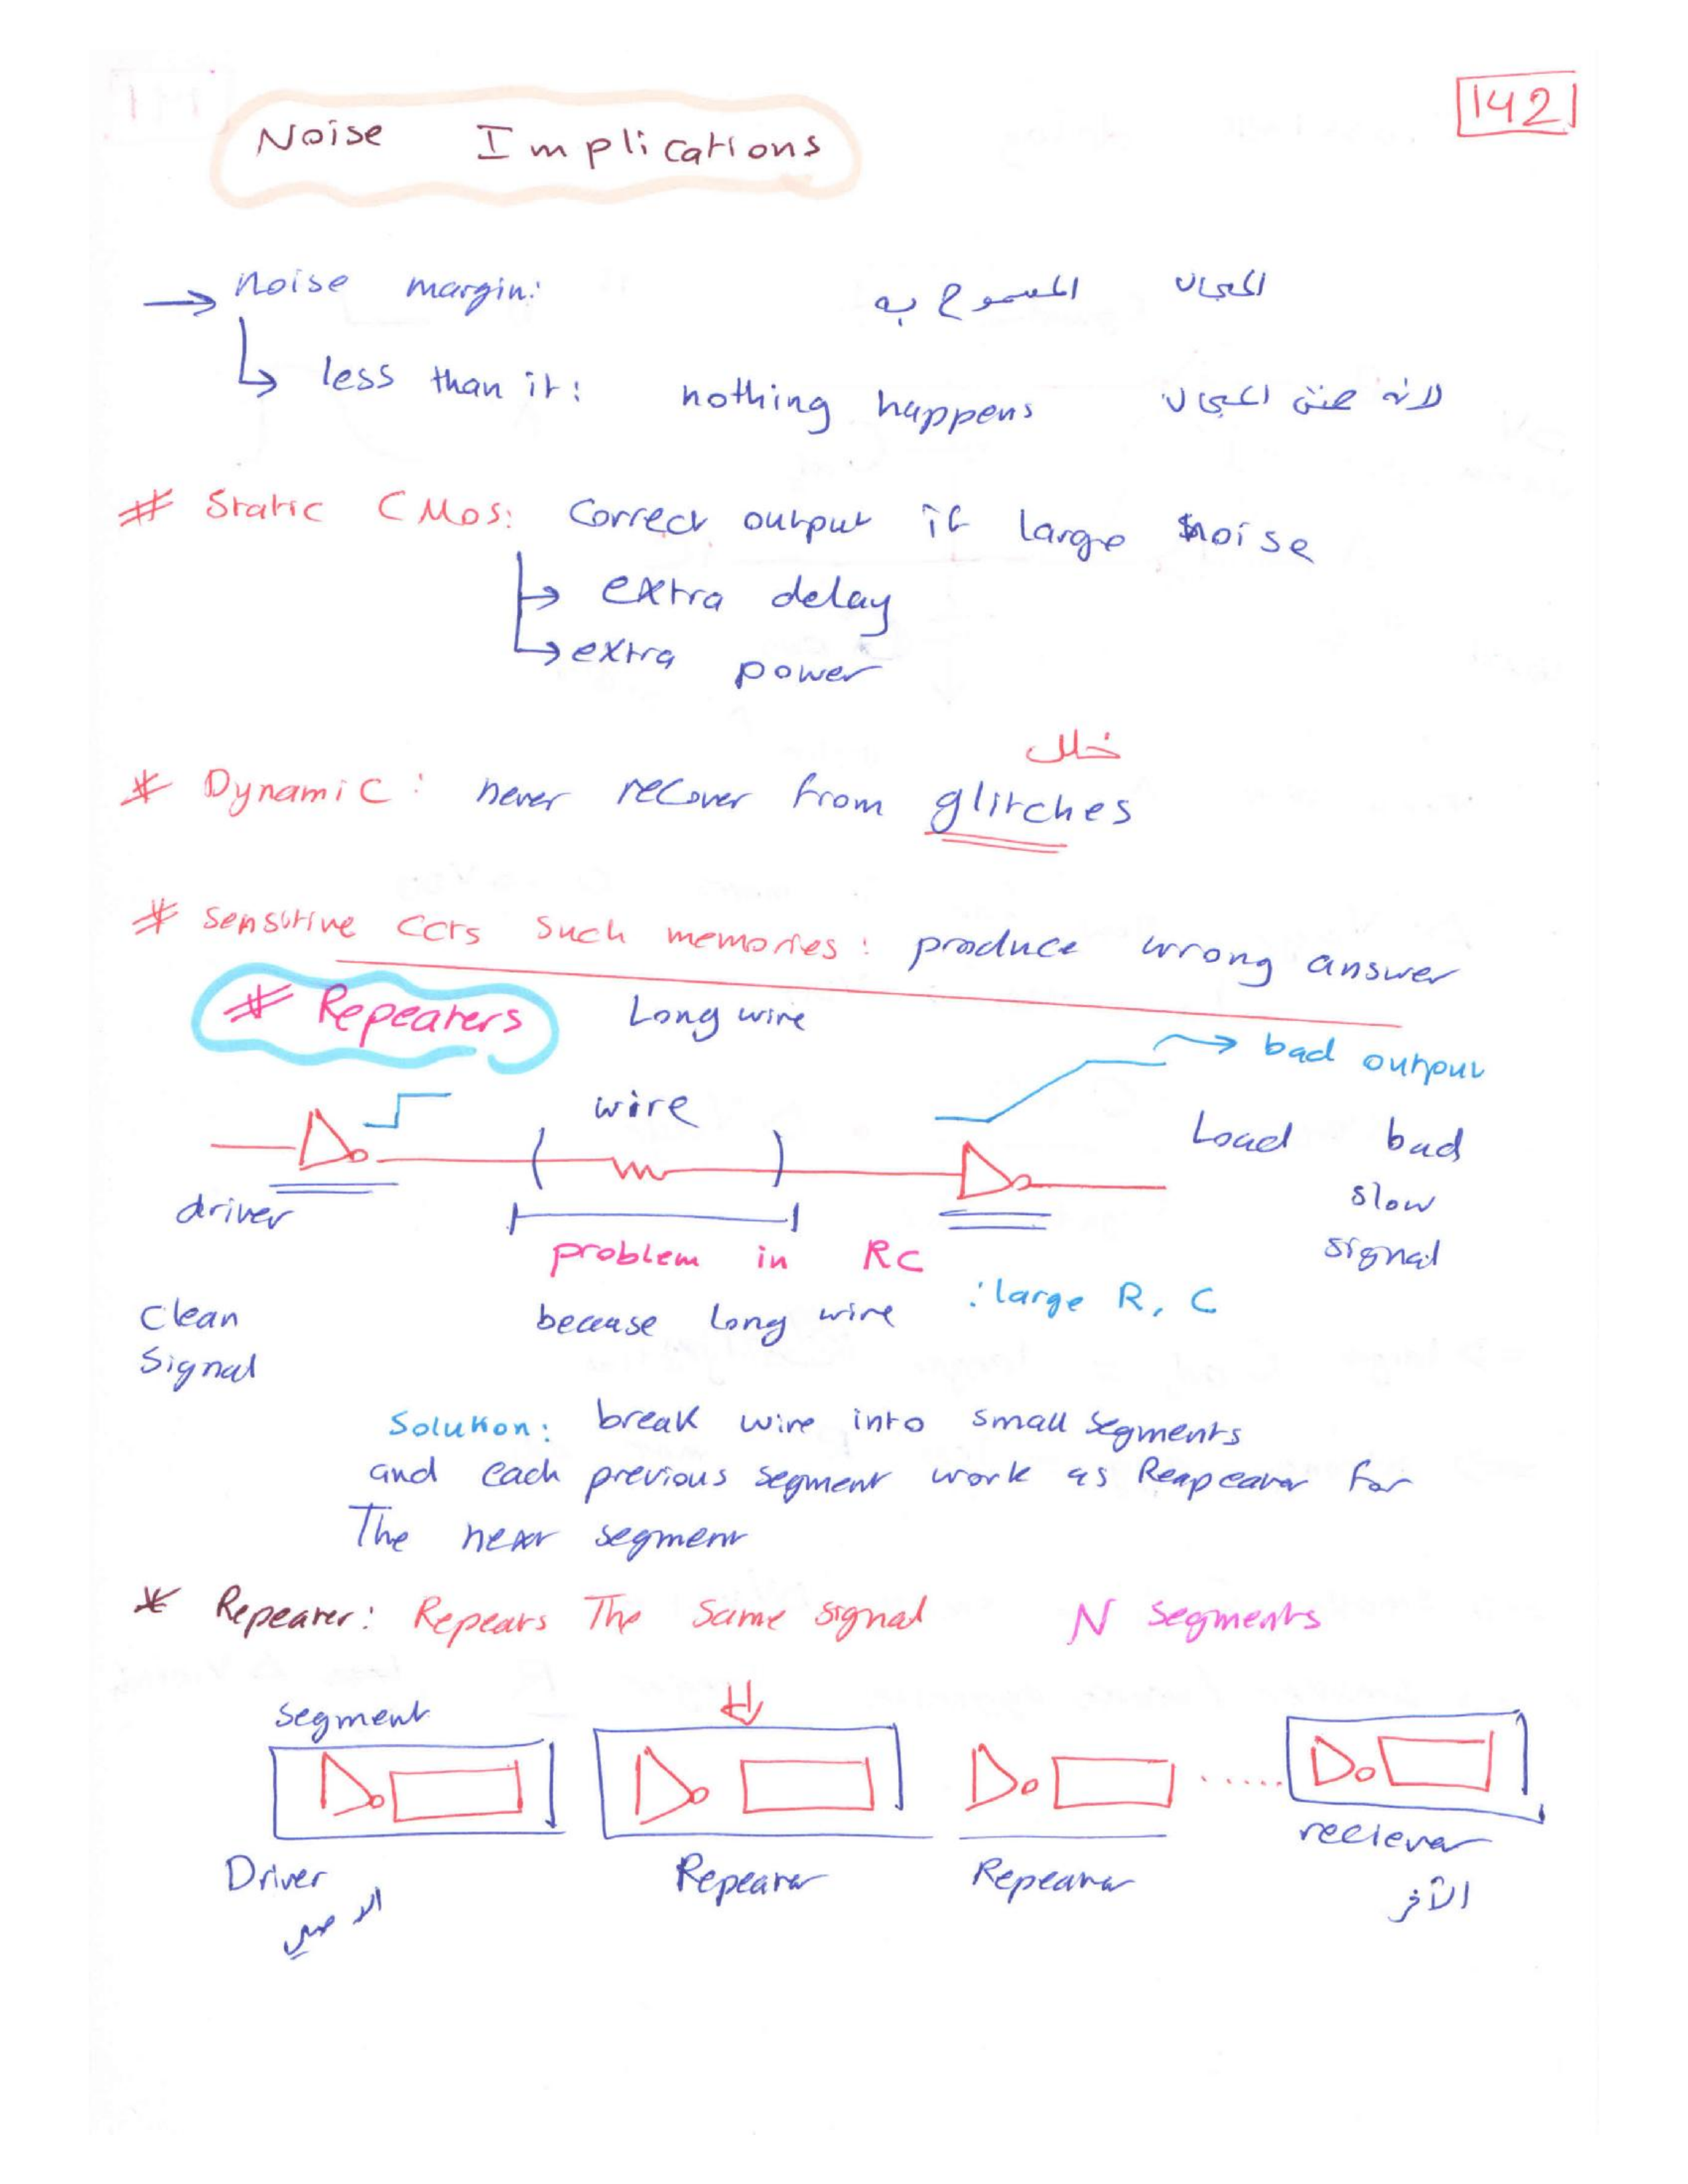 142
Noise Implications
→ noise margin: المجال المسموح به
↳ less than it: nothing happens لانه ضمن المجال
# Static CMOS: Correct output if large noise
→ extra delay
↳ extra power
خلل
* Dynamic: never recover from glitches
# Sensitive CCTs such memories: produce wrong answer
# Repeaters Long wire
→ bad output
wire
Load bad
slow
signal
driver
problem in RC
: large R, C
Clean
Signal
because long wire
Solution: break wire into small segments
and each previous segment work as Reapeater for
The next segment
* Repeater: Repeats The same signal N segments
segment
Driver Repeater Repeater reciever
الاصلي الآخر